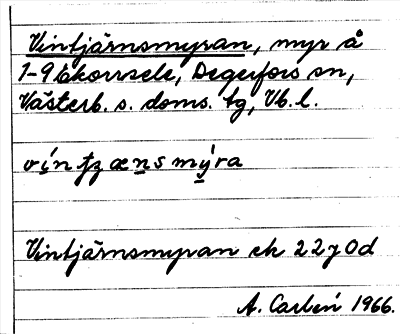 Vintjärnsmyran, myr å
1-9 Ekorrsele, Degerfors sn,
Västerb. s. doms. tg, Vb. l.
Vintjärnsmyran ek 22 J 0d
A. Carlén 1966.